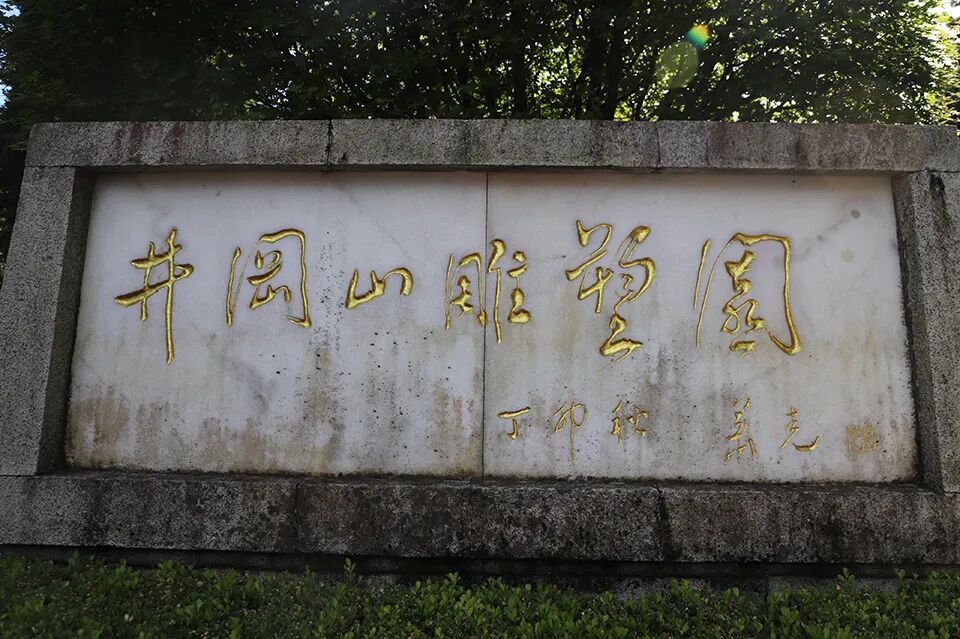 井冈山雕塑園
丁卯秋 萧克